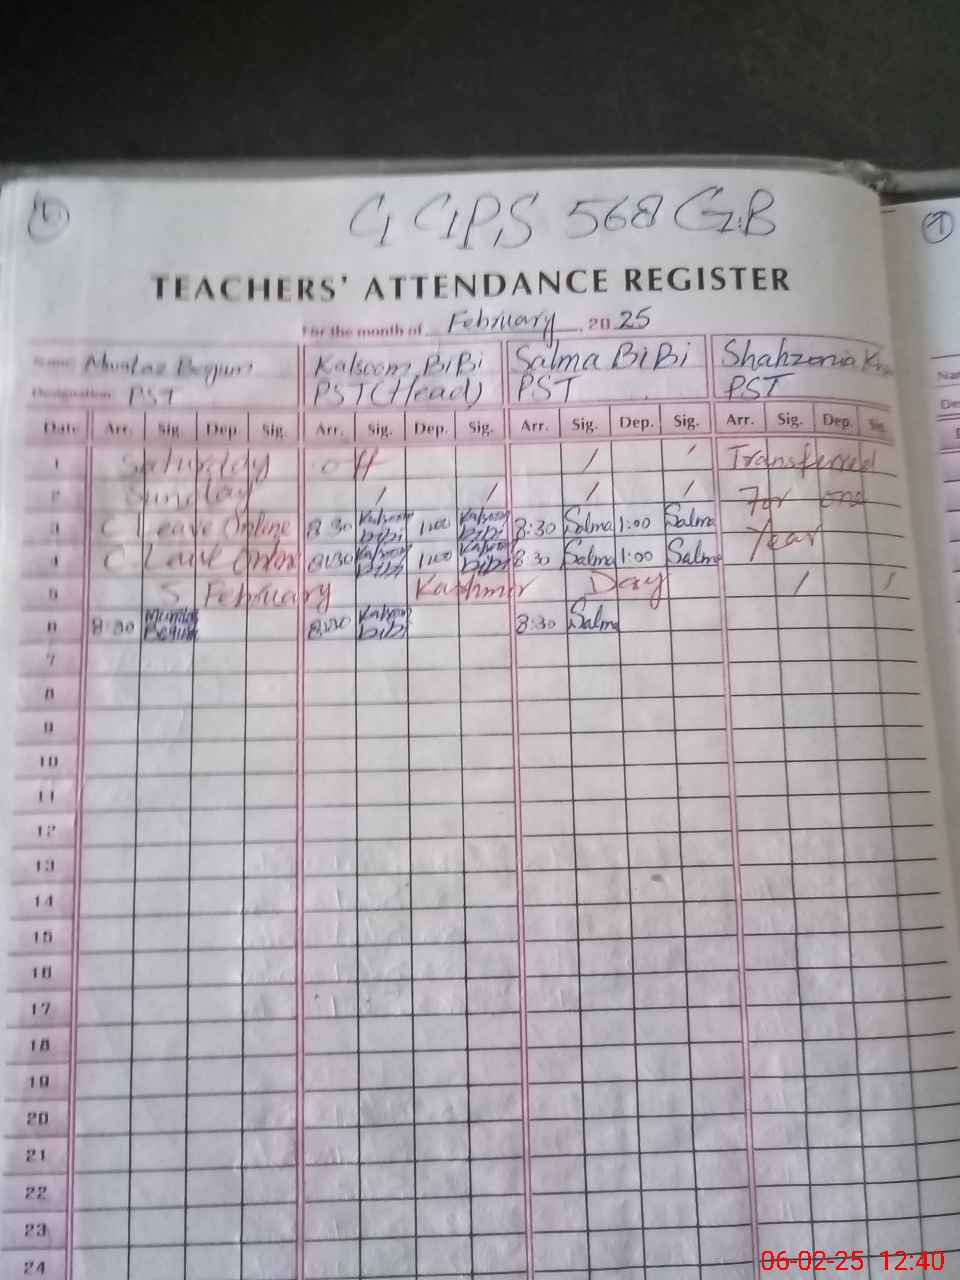 6
G GPS 568 GB
1
TEACHERS' ATTENDANCE REGISTER
For the month of February, 2025
Name Mumtaz Begum Kalsoom BiBi Salma BiBi Shahzonia
Designation PST PST (Head) PST PST
Date Arr. Sig. Dep. Sig. Arr. Sig. Dep. Sig. Arr. Sig. Dep. Sig. Arr. Sig. Dep. Sig.
1 Saturday off / / Transferred
2 Sunday / / / / For one
3 C Leave Online 8:30 Kalsoom bibi 1:00 Kalsoom bibi 8:30 Salma 1:00 Salma Year
4 C Leave Online 8:30 Kalsoom bibi 1:00 Kalsoom bibi 8:30 Salma 1:00 Salma
5 5 February Kashmir Day / /
6 8:30 Mumtaz Begum 8:30 Kalsoom bibi 8:30 Salma
7
8
9
10
11
12
13
14
15
16
17
18
19
20
21
22
23
24
06-02-25 12:40